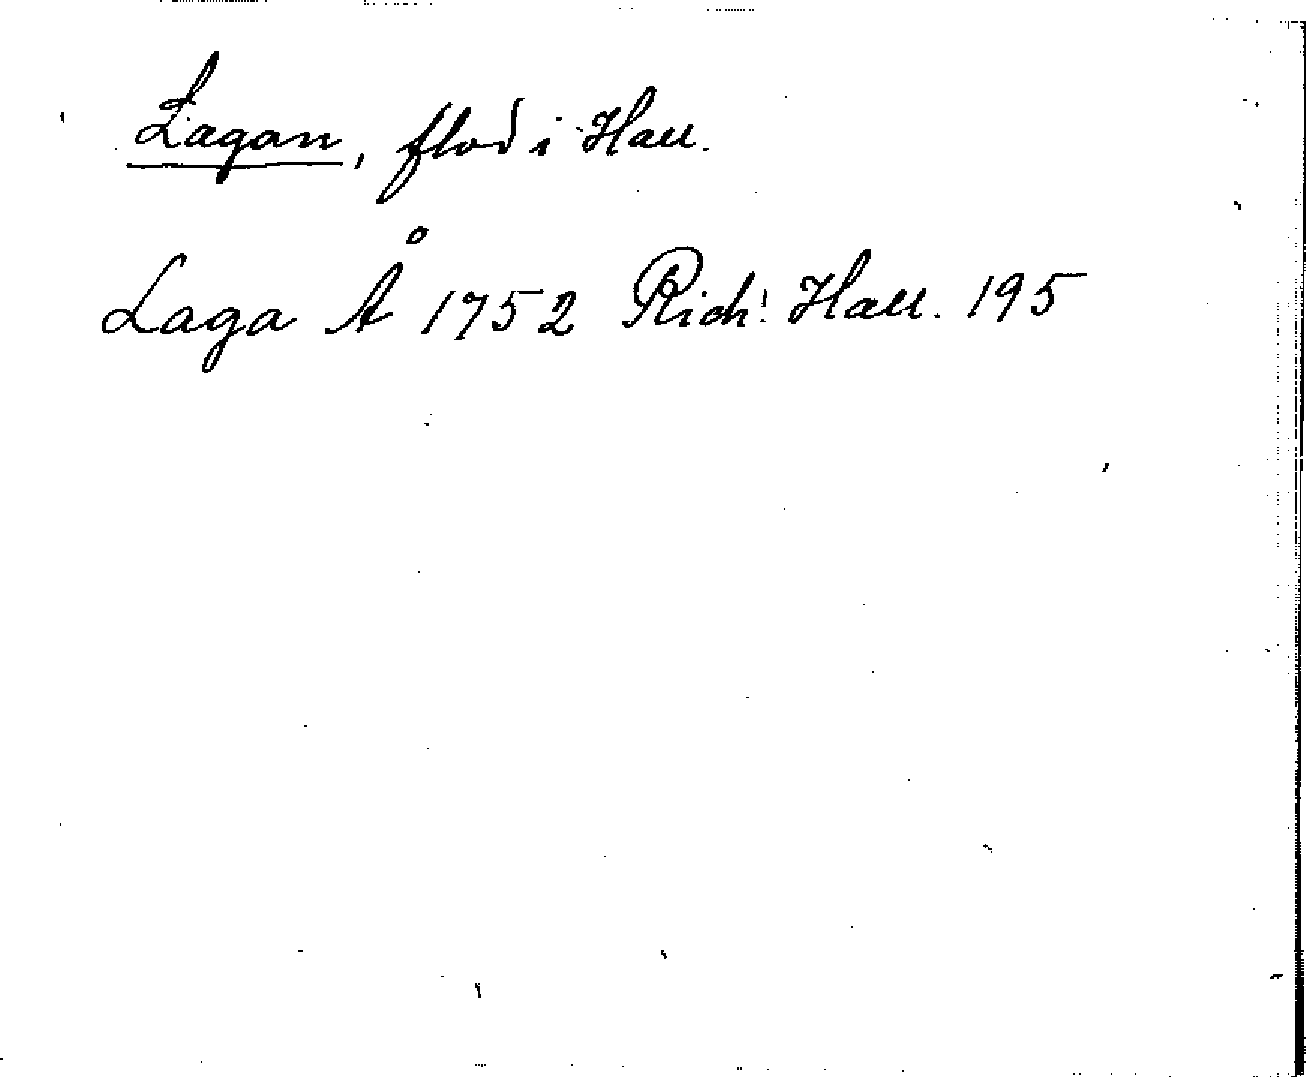 Lagan, flod i Hall.
Laga Å 1752 Rich: Hall. 195